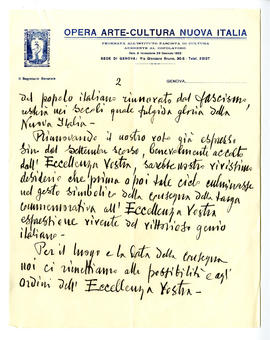 OPERA ARTE-CULTURA NUOVA ITALIA
PREMIATA DALL'ISTITUTO FASCISTA DI CULTURA
ADERENTE AL DOPOLAVORO
SEDE DI GENOVA: Via Giordano Bruno,
Il Segretario Generale
GENOVA,
2
del popolo italiano rinnovato dal fascismo
resterà nei secoli quale fulgida gloria della
Nuova Italia -
Rinnovando il nostro voto già espresso
sin dal settembre scorso, benevolmente accolto
dall' Eccellenza Vostra, sarebbe nostro vivissimo
desiderio che prima o poi tale ciclo culminasse
nel gesto simbolico della consegna della targa
commemorativa all' Eccellenza Vostra
espressione vivente del vittorioso genio
italiano -
Per il luogo e la data della consegna
noi ci rimettiamo alle possibilità e agl'
ordini dell' Eccellenza Vostra -